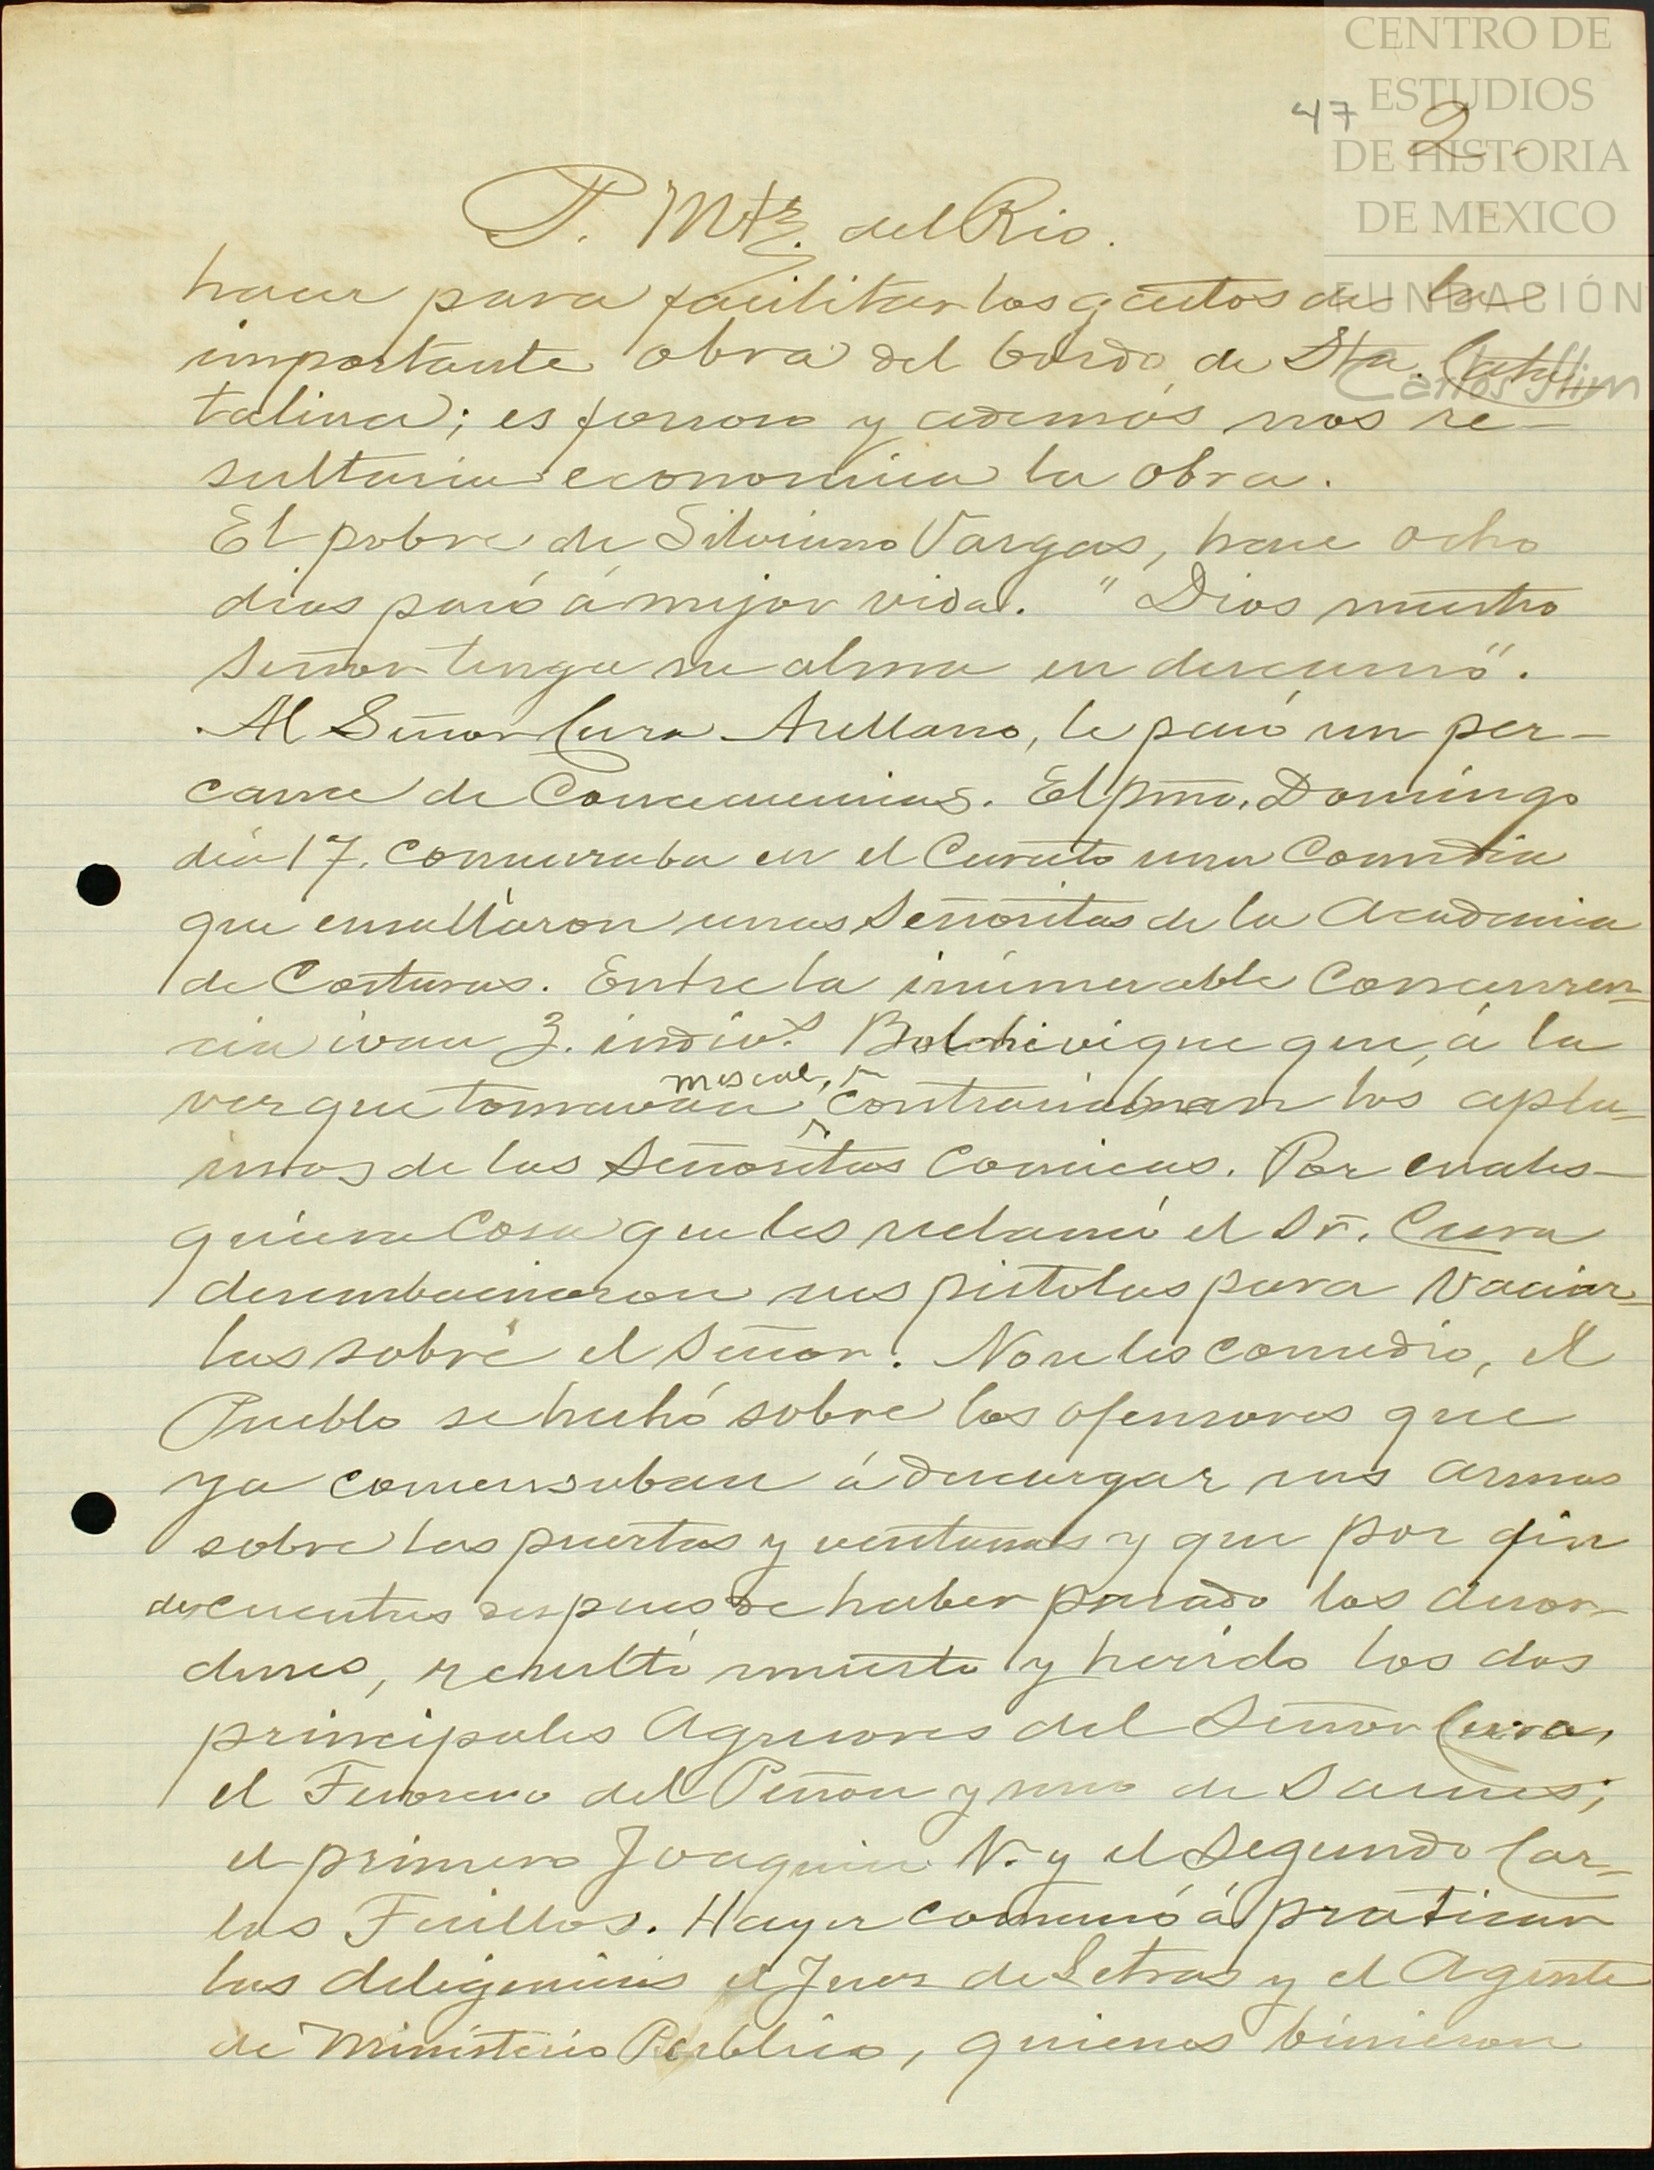 CENTRO DE
ESTUDIOS
DE HISTORIA
DE MEXICO
FUNDACIÓN
Carlos Slim
47 2.
P. Mtz. del Rio.
hacer para facilitar los gastos de la
importante obra del bordo de Sta. Cata
talina; es forroso y además nos re-
sultaria economica la obra.
El pobre de Silviano Vargas, hace ocho
dias pasó á mejor vida. "Dios nuestro
Señor tenga su alma en descanso".
Al Señor Cura Arellano, le pasó un per-
cance de Consecuencias. El pmo. Domingo
dia 17. comensaba en el Curato una Comedia
que ensallaron unas Señoritas de la Academia
de Costuras. Entre la inúmerable Concurren-
cia ivan 3. indivs. Bolchivique que, á la
vez que tomavan mescal, contrariaban los aplau-
sos de las Señoritas Comicas. Por cuales-
quiera Cosa que les reclamó el Sr. Cura
desembainaron sus pistolas para Vaciar-
las sobre el Señor. No se les consedio, el
Pueblo se hechó sobre los ofensores que
ya comensaban á descargar sus armas
sobre las puertas y ventanas y que por fin
de cuentas despues de haber pasado los desor-
denes, resultó muerto y herido los dos
principales Agresores del Señor Cura,
el Ferrero del Peñon y uno de Sauces;
el primero Joaquin N. y el Segundo Car-
los Fraillos. Hayer comensó á praticar
las deligencias el Jues de Letras y el Agente
de Ministerio Publico, quienes binieron